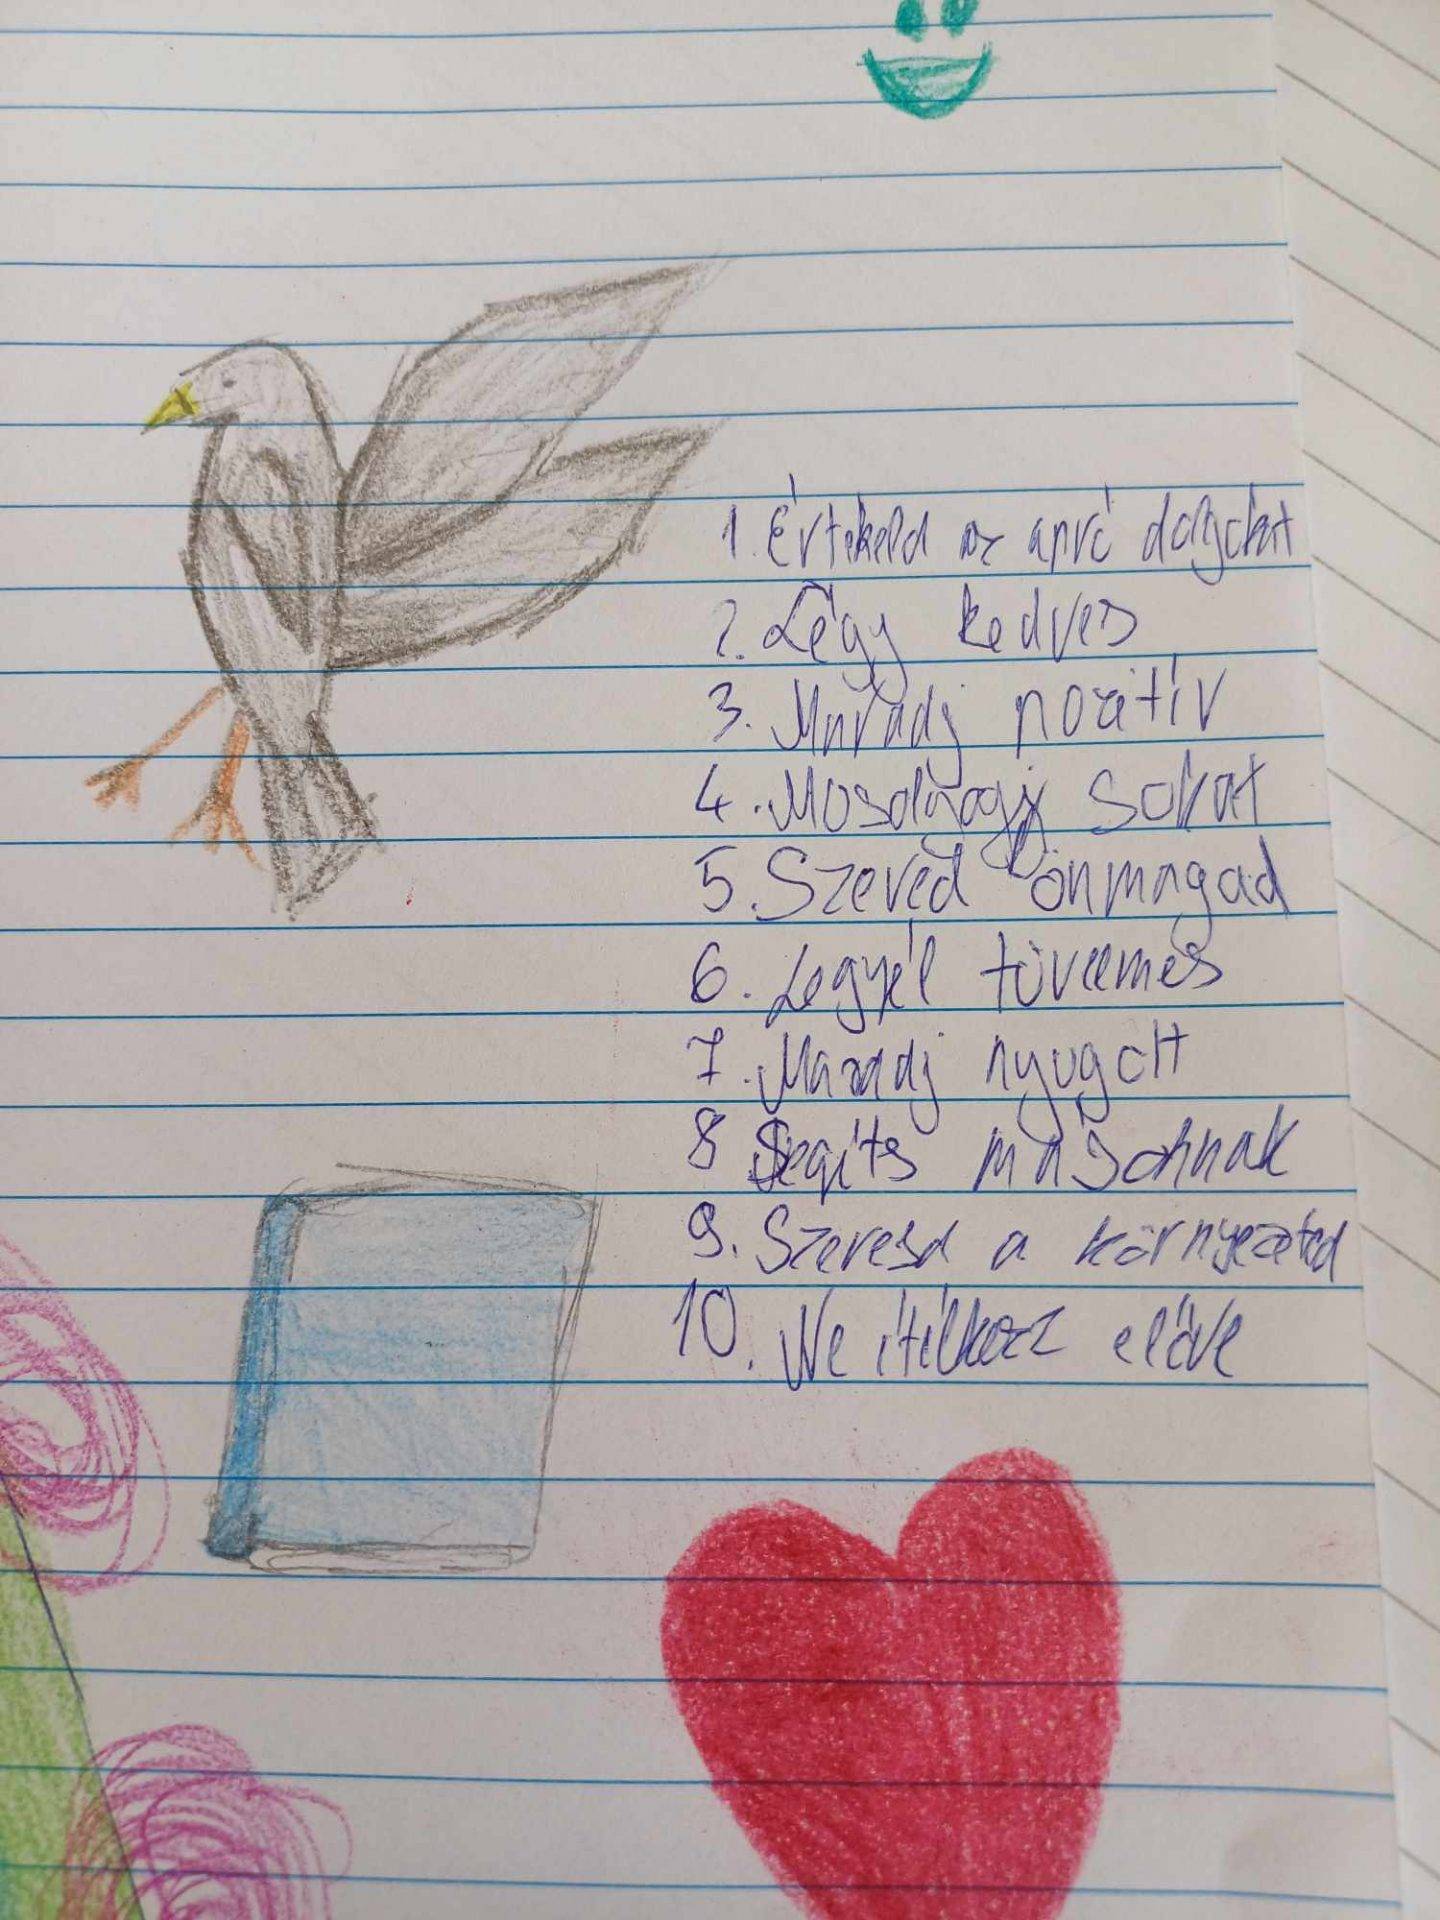 1. Értékeld az apró dolgokat
2. Légy kedves
3. Maradj pozitív
4. Mosolyogj sokat
5. Szeresd önmagad
6. Legyél türelmes
7. Maradj nyugott
8 Segíts másoknak
9. Szeresd a környezeted
10. Ne ítélkezz előre